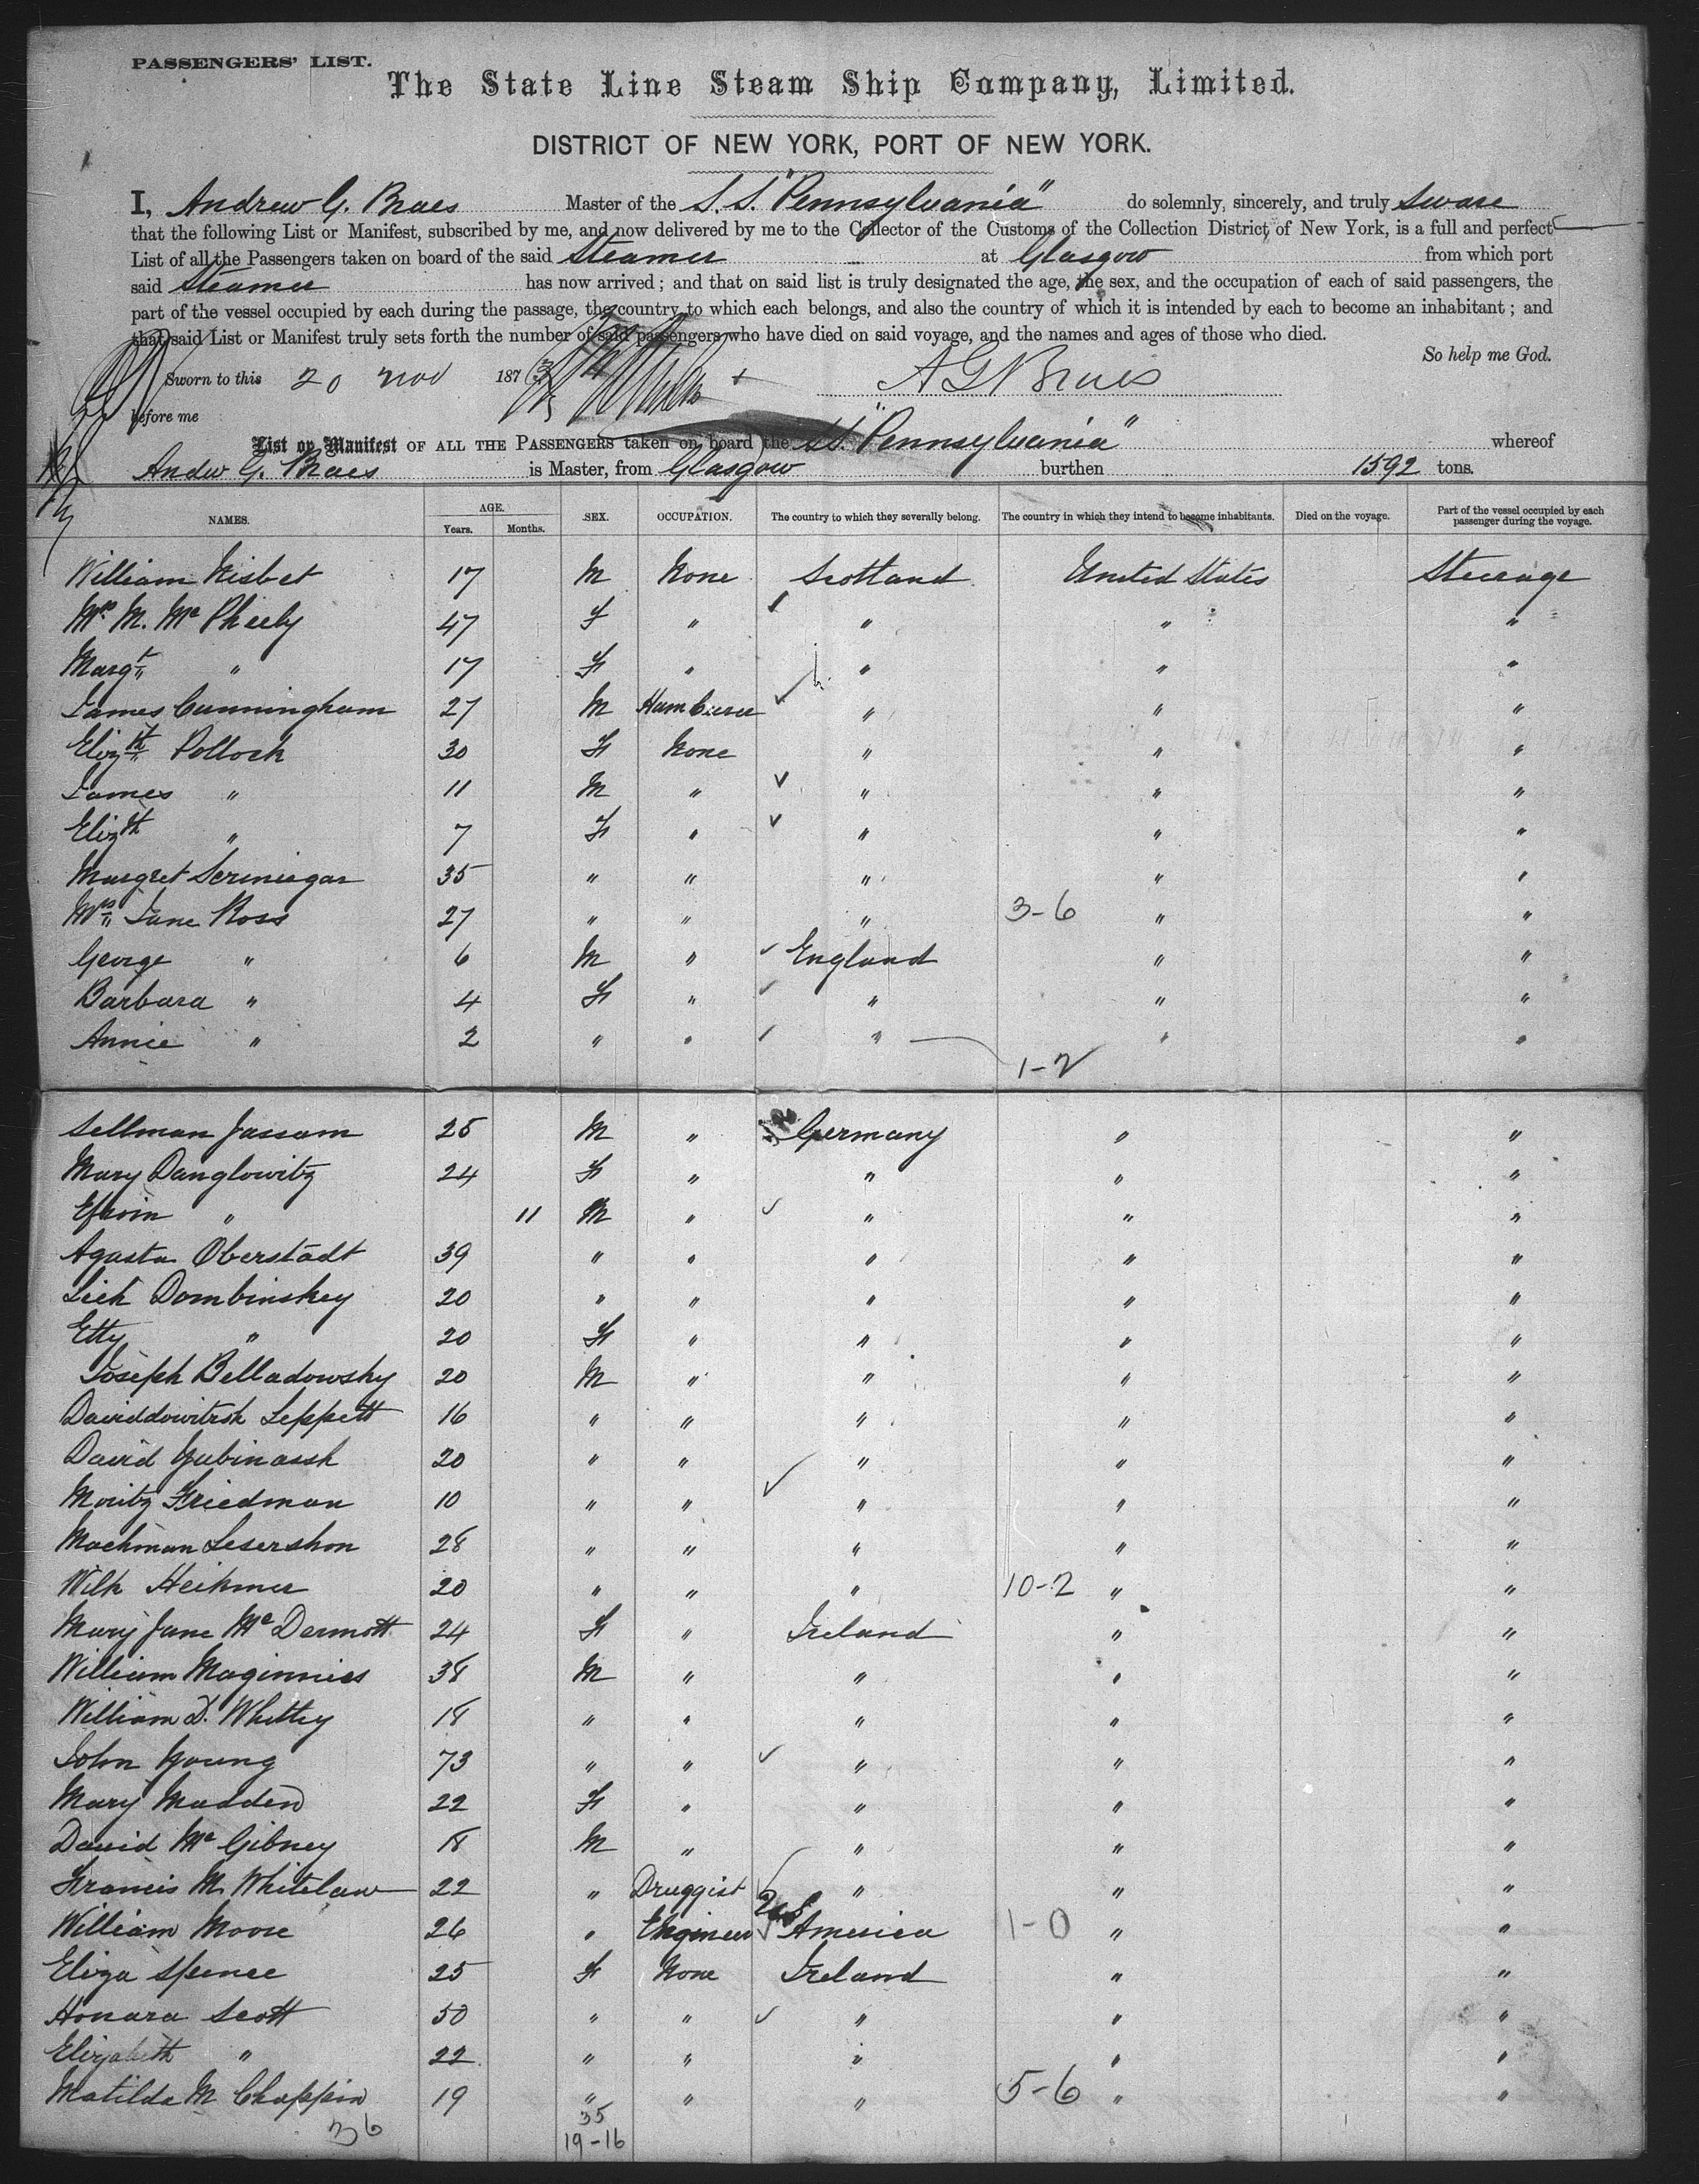 PASSENGERS' LIST.
The State Line Steam Ship Company, Limited.
DISTRICT OF NEW YORK, PORT OF NEW YORK.
I, Andrew G. Braes Master of the S.S. "Pennsylvania" do solemnly, sincerely, and truly sware
that the following List or Manifest, subscribed by me, and now delivered by me to the Collector of the Customs of the Collection District of New York, is a full and perfect
List of all the Passengers taken on board of the said Steamer at Glasgow from which port
said Steamer has now arrived; and that on said list is truly designated the age, the sex, and the occupation of each of said passengers, the
part of the vessel occupied by each during the passage, the country to which each belongs, and also the country of which it is intended by each to become an inhabitant; and
that said List or Manifest truly sets forth the number of said passengers who have died on said voyage, and the names and ages of those who died.
So help me God.
Sworn to this 20 Nov 1873 A G Braes
before me
List or Manifest OF ALL THE PASSENGERS taken on board the SS. "Pennsylvania" whereof
Andw G. Braes is Master, from Glasgow burthen 1592 tons.
NAMES. AGE. Years. Months. SEX. OCCUPATION. The country to which they severally belong. The country in which they intend to become inhabitants. Died on the voyage. Part of the vessel occupied by each passenger during the voyage.
William Nisbet 17 M None Scotland United States Steerage
Mrs M. Mc Pheely 47 F " " " "
Margt " 17 F " " " "
James Cunningham 27 M " " "
Elizth Pollock 30 F None " " "
James " 11 M " " " "
Elizth " 7 F " " " "
Margret 35 " " " " "
Mrs Jane Ross 27 " " " 3-6 " "
George " 6 M " England " "
Barbara " 4 F " " " "
Annie " 2 " " " " "
1-2
Sellman Jassam 25 M " Germany " "
Mary Danglowitz 24 F " " " "
" 11 M " " " "
Agusta Oberstadt 39 " " " " "
Lieh Dombinskey 20 " " " " "
Etty " 20 F " " " "
Joseph Belladowsky 20 M " " " "
Daviddowitsh Leppett 16 " " " " "
David Gubinassh 20 " " " " "
Moritz Friedman 10 " " " " "
Machman Lesershon 28 " " " " "
Wilh Heihmer 20 " " " 10-2 " "
Mary Jane Mc Dermott 24 F " Ireland " "
William Maginnies 38 M " " " "
William D. Whittey 18 " " " " "
John Young 73 " " " " "
Mary Madden 22 F " " " "
David Mc Gibney 18 M " " " "
Francis M. Whitelaw 22 " Druggist " " "
William Moore 26 " Engineer America 1-0 " "
Eliza Spence 25 F None Ireland " "
Honara Scott 50 " " " " "
Elizabeth " 22 " " " " "
Matilda M Chappin 19 " " " 5-6 " "
36 35
19-16